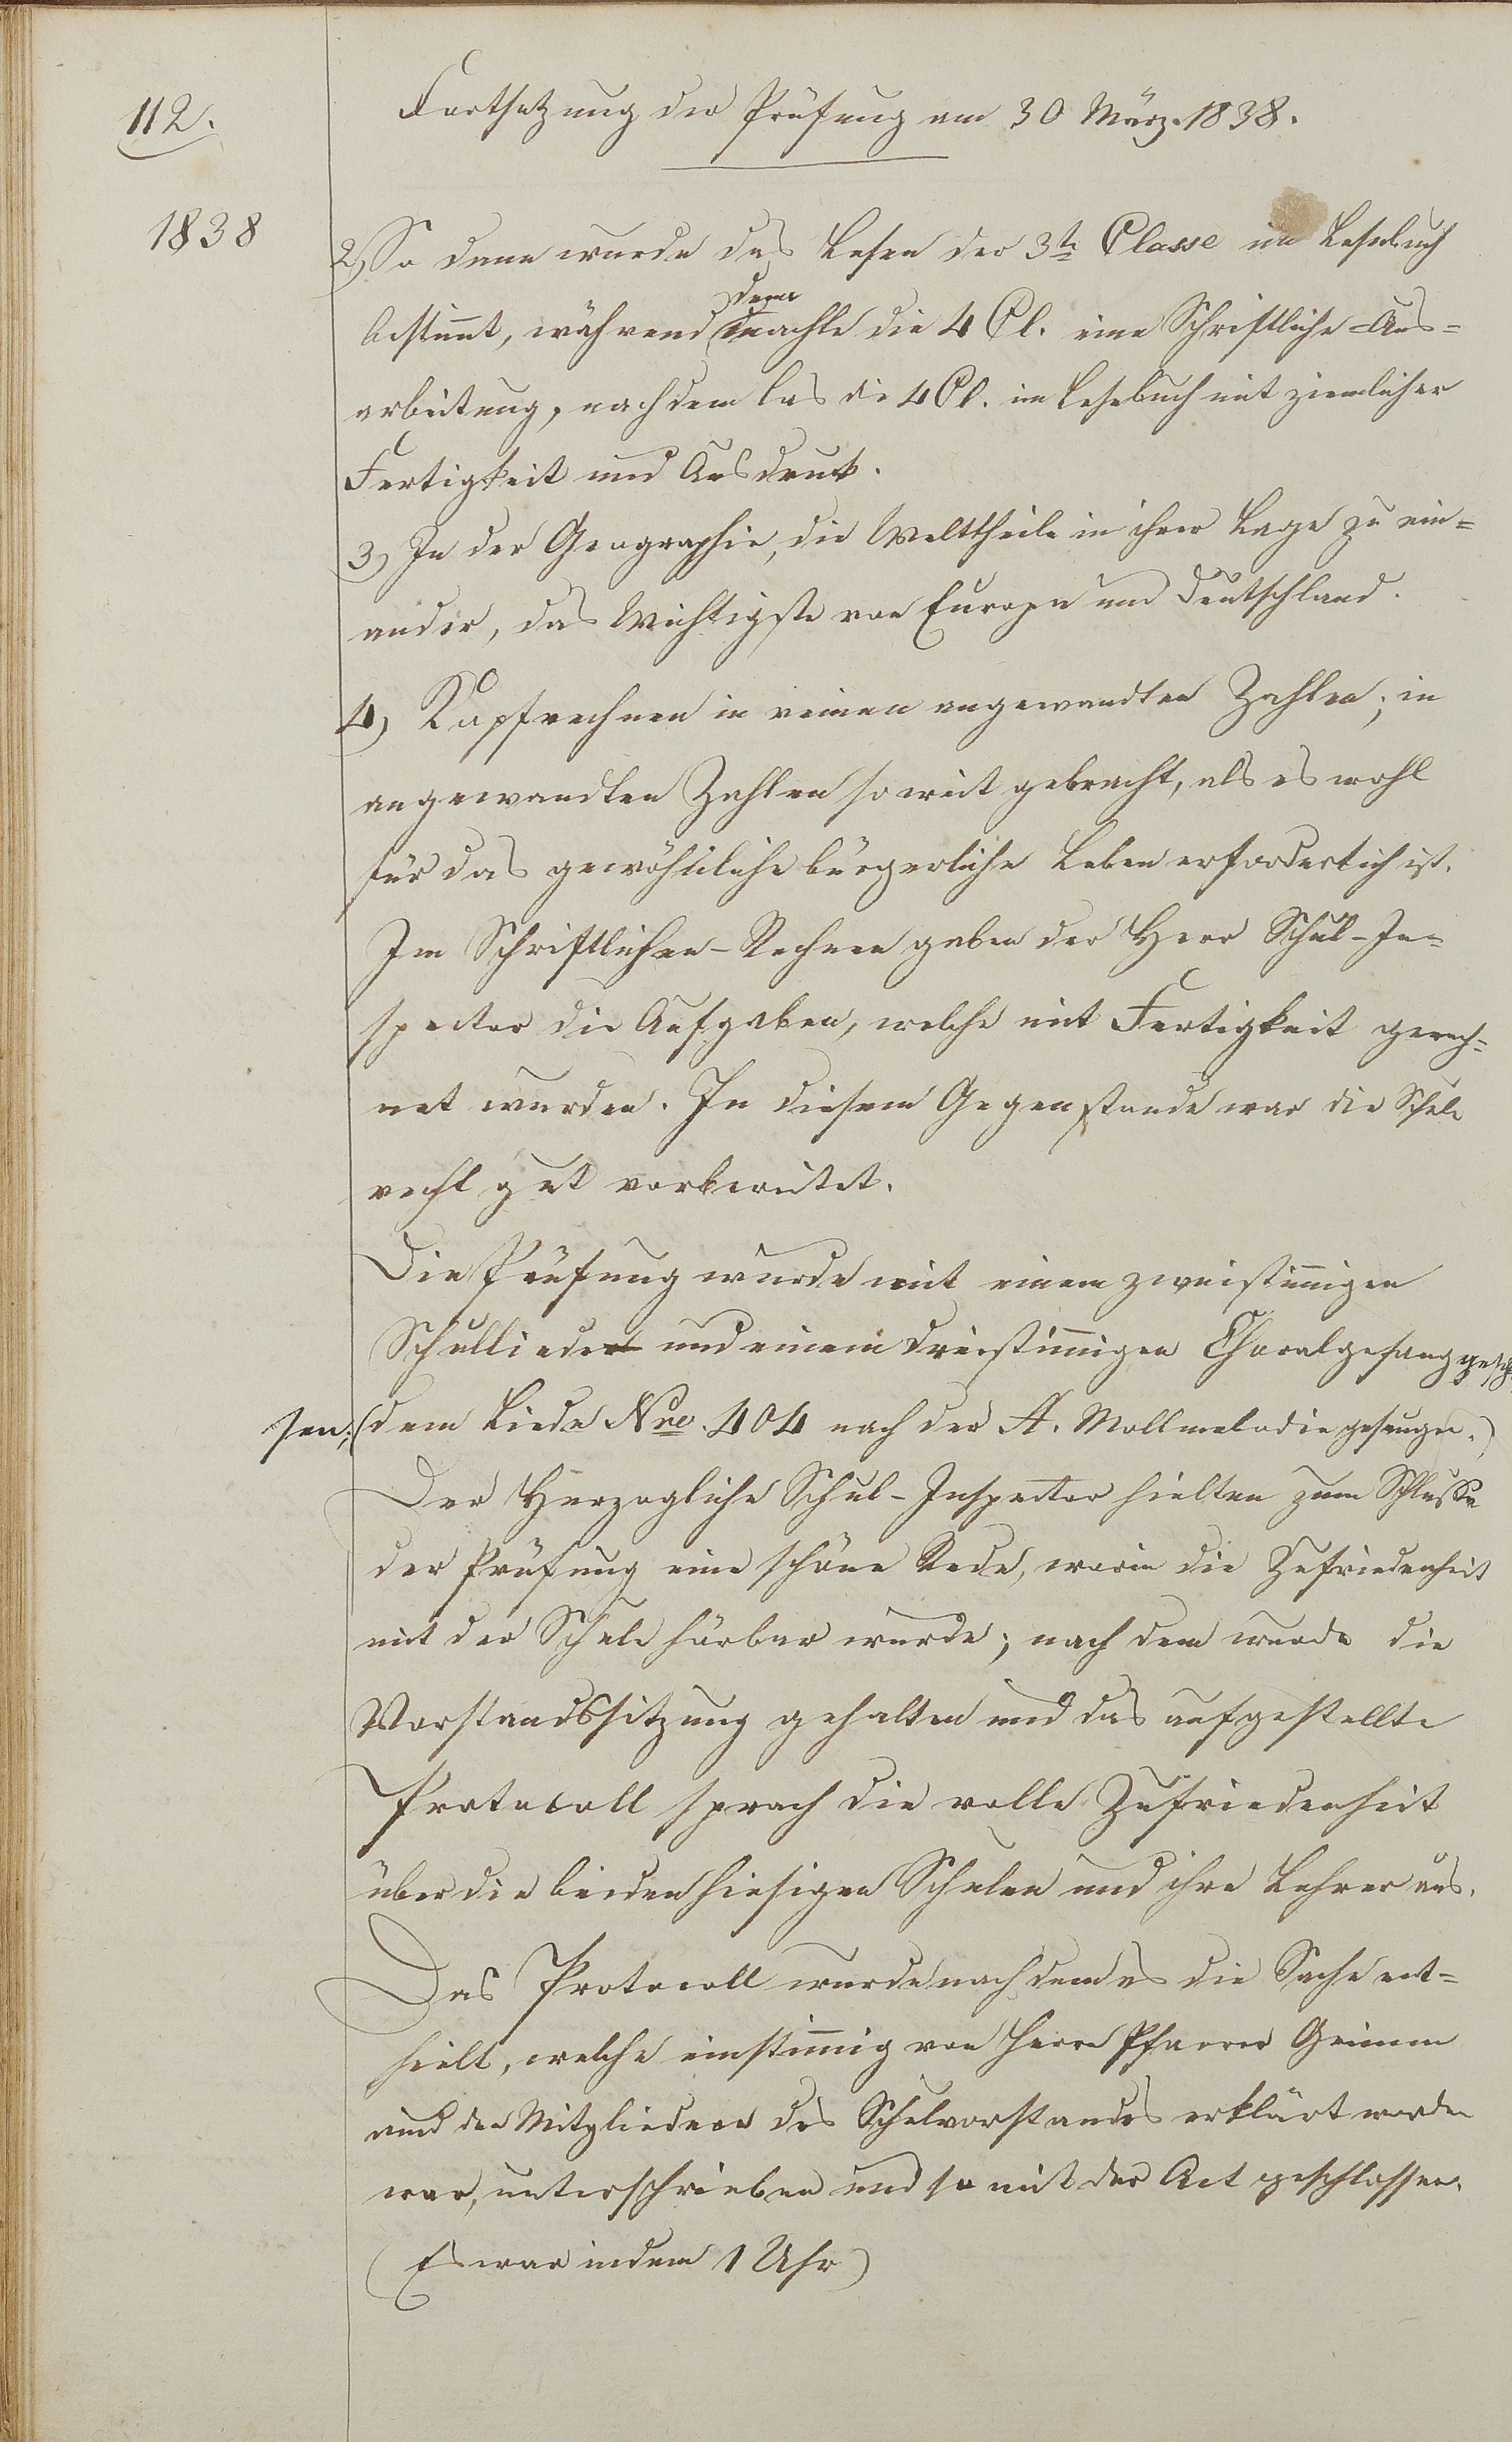 112.
Fortsetzung der Prüfung am 30 März. 1838.
1838
2) So dann wurde das Lesen der 3te Classe im Lesebuch
bestimmt, während dem machte die 4 Cl. eine Schriftliche-Aus-
arbeitung, nachdem las die 4 Cl. im Lesebuch mit ziemlicher
Fertigkeit und Ausdruck.
3) In der Geographie, die Welttheile in ihrer Lage zu ein-
ander, das Wichtigste von Europa und Deutschland.
4) Kopfrechnen in reinen angewandten Zahlen; in
angewandten Zahlen so weit gebracht, als es wohl
für das gewöhnliche bürgerliche Leben erforderlich ist.
Im Schriftlichen-Rechnen gaben der Herr Schul-In-
spector die Aufgaben, welche mit Fertigkeit gerech-
net wurden. In diesem Gegenstande war die Schule
recht gut vorbereitet.
Die Prüfung wurde mit einem zweistimmigen
Schulliede und einem dreistimmigen Choralgesang geschlos-
sen; (dem Liede Nro. 404 nach der A. Mollmelodie gesungen.)
Der Herzogliche Schul-Inspector hielten zum Schlusse
der Prüfung eine schöne Rede, worin die Zufriedenheit
mit der Schule hörbar wurde; nach dem wurde die
Vorstandssitzung gehalten und das aufgestellte
Protocoll sprach die volle Zufriedenheit
über die beiden hiesigen Schulen und ihre Lehrer aus.
Das Protocoll wurde nachdem es die Sache ent-
hielt, welche einstimmig von Herrn Pfarrer Grimm
und den Mitgliedern des Schulvorstandes erklärt worden
war, unterschrieben und so mit der Act geschlossen.
(Es war indem 1 Uhr)